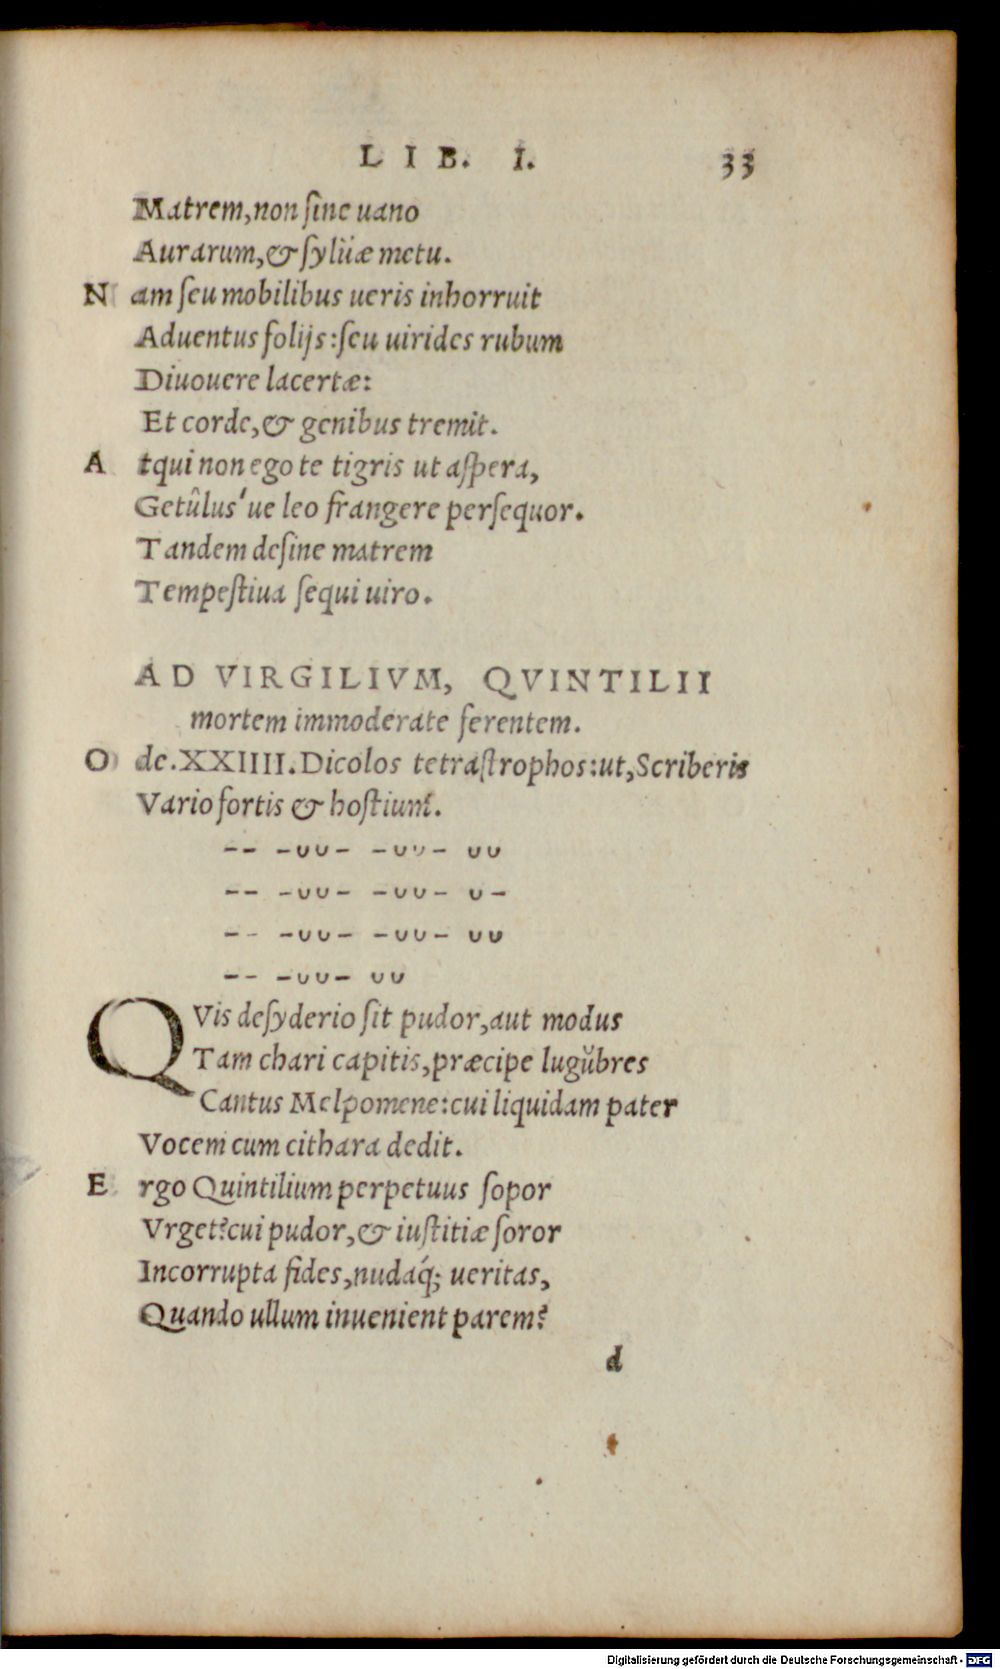 LIB. I. 33
Matrem, non ſine uano
Aurarum, & ſylüæ metu.
N am ſeu mobilibus ueris inhorruit
Aduentus folijs: ſeu uirides rubum
Diuouere lacertæ:
Et corde, & genibus tremit.
A tqui non ego te tigris ut aſpera,
Getûlus'ue leo frangere perſequor.
Tandem deſine matrem
Tempeſtiua ſequi uiro.
AD VIRGILIVM, QVINTILII
mortem immoderate ferentem.
O de. XXIIII. Dicolos tetraſtrophos: ut, Scriberis
Vario fortis & hoſtium.
-- -υυ- -υυ- υυ
-- -υυ- -υυ- υ-
-- -υυ- -υυ- υυ
-- -υυ- υυ
QVis deſyderio ſit pudor, aut modus
Tam chari capitis, præcipe lugŭbres
Cantus Melpomene: cui liquidam pater
Vocem cum cithara dedit.
E rgo Quintilium perpetuus ſopor
Vrget? cui pudor, & iuſtitiæ ſoror
Incorrupta fides, nudaq́; ueritas,
Quando ullum inuenient parem?
d
Digitalisierung gefördert durch die Deutsche Forschungsgemeinschaft - DFG